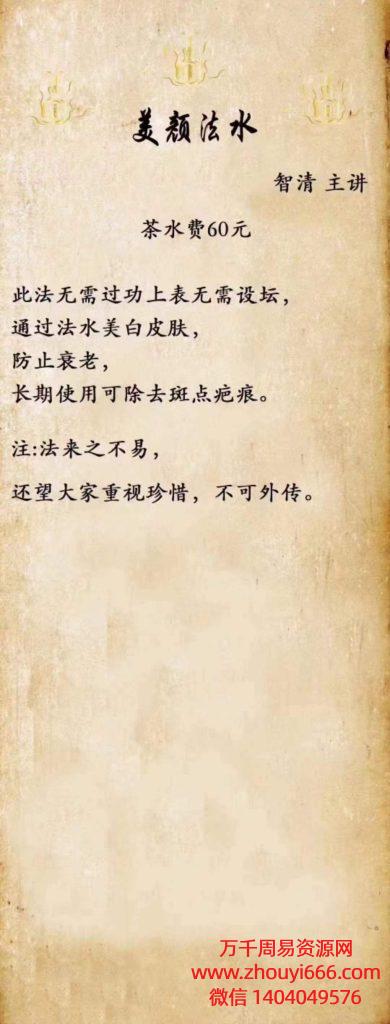 美颜法水
智清 主讲
茶水费60元
此法无需过功上表无需设坛，
通过法水美白皮肤，
防止衰老，
长期使用可除去斑点疤痕。
注:法来之不易，
还望大家重视珍惜，不可外传。
万千周易资源网
www.zhouyi666.com
微信 1404049576